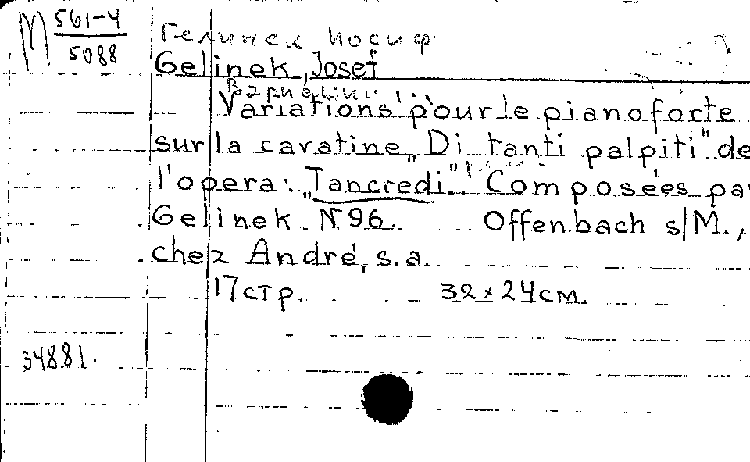 М 561-4
5088
Гелинек Иосиф
Gelinek, Josef
Вариации
Variations pour le pianoforte
sur la cavatine „Di tanti palpiti" de
l'opera: „Tancredi". Composées pa
Gelinek. N 96. Offenbach s/M.,
chez André, s.a.
17 стр. 32 x 24 см.
34881.